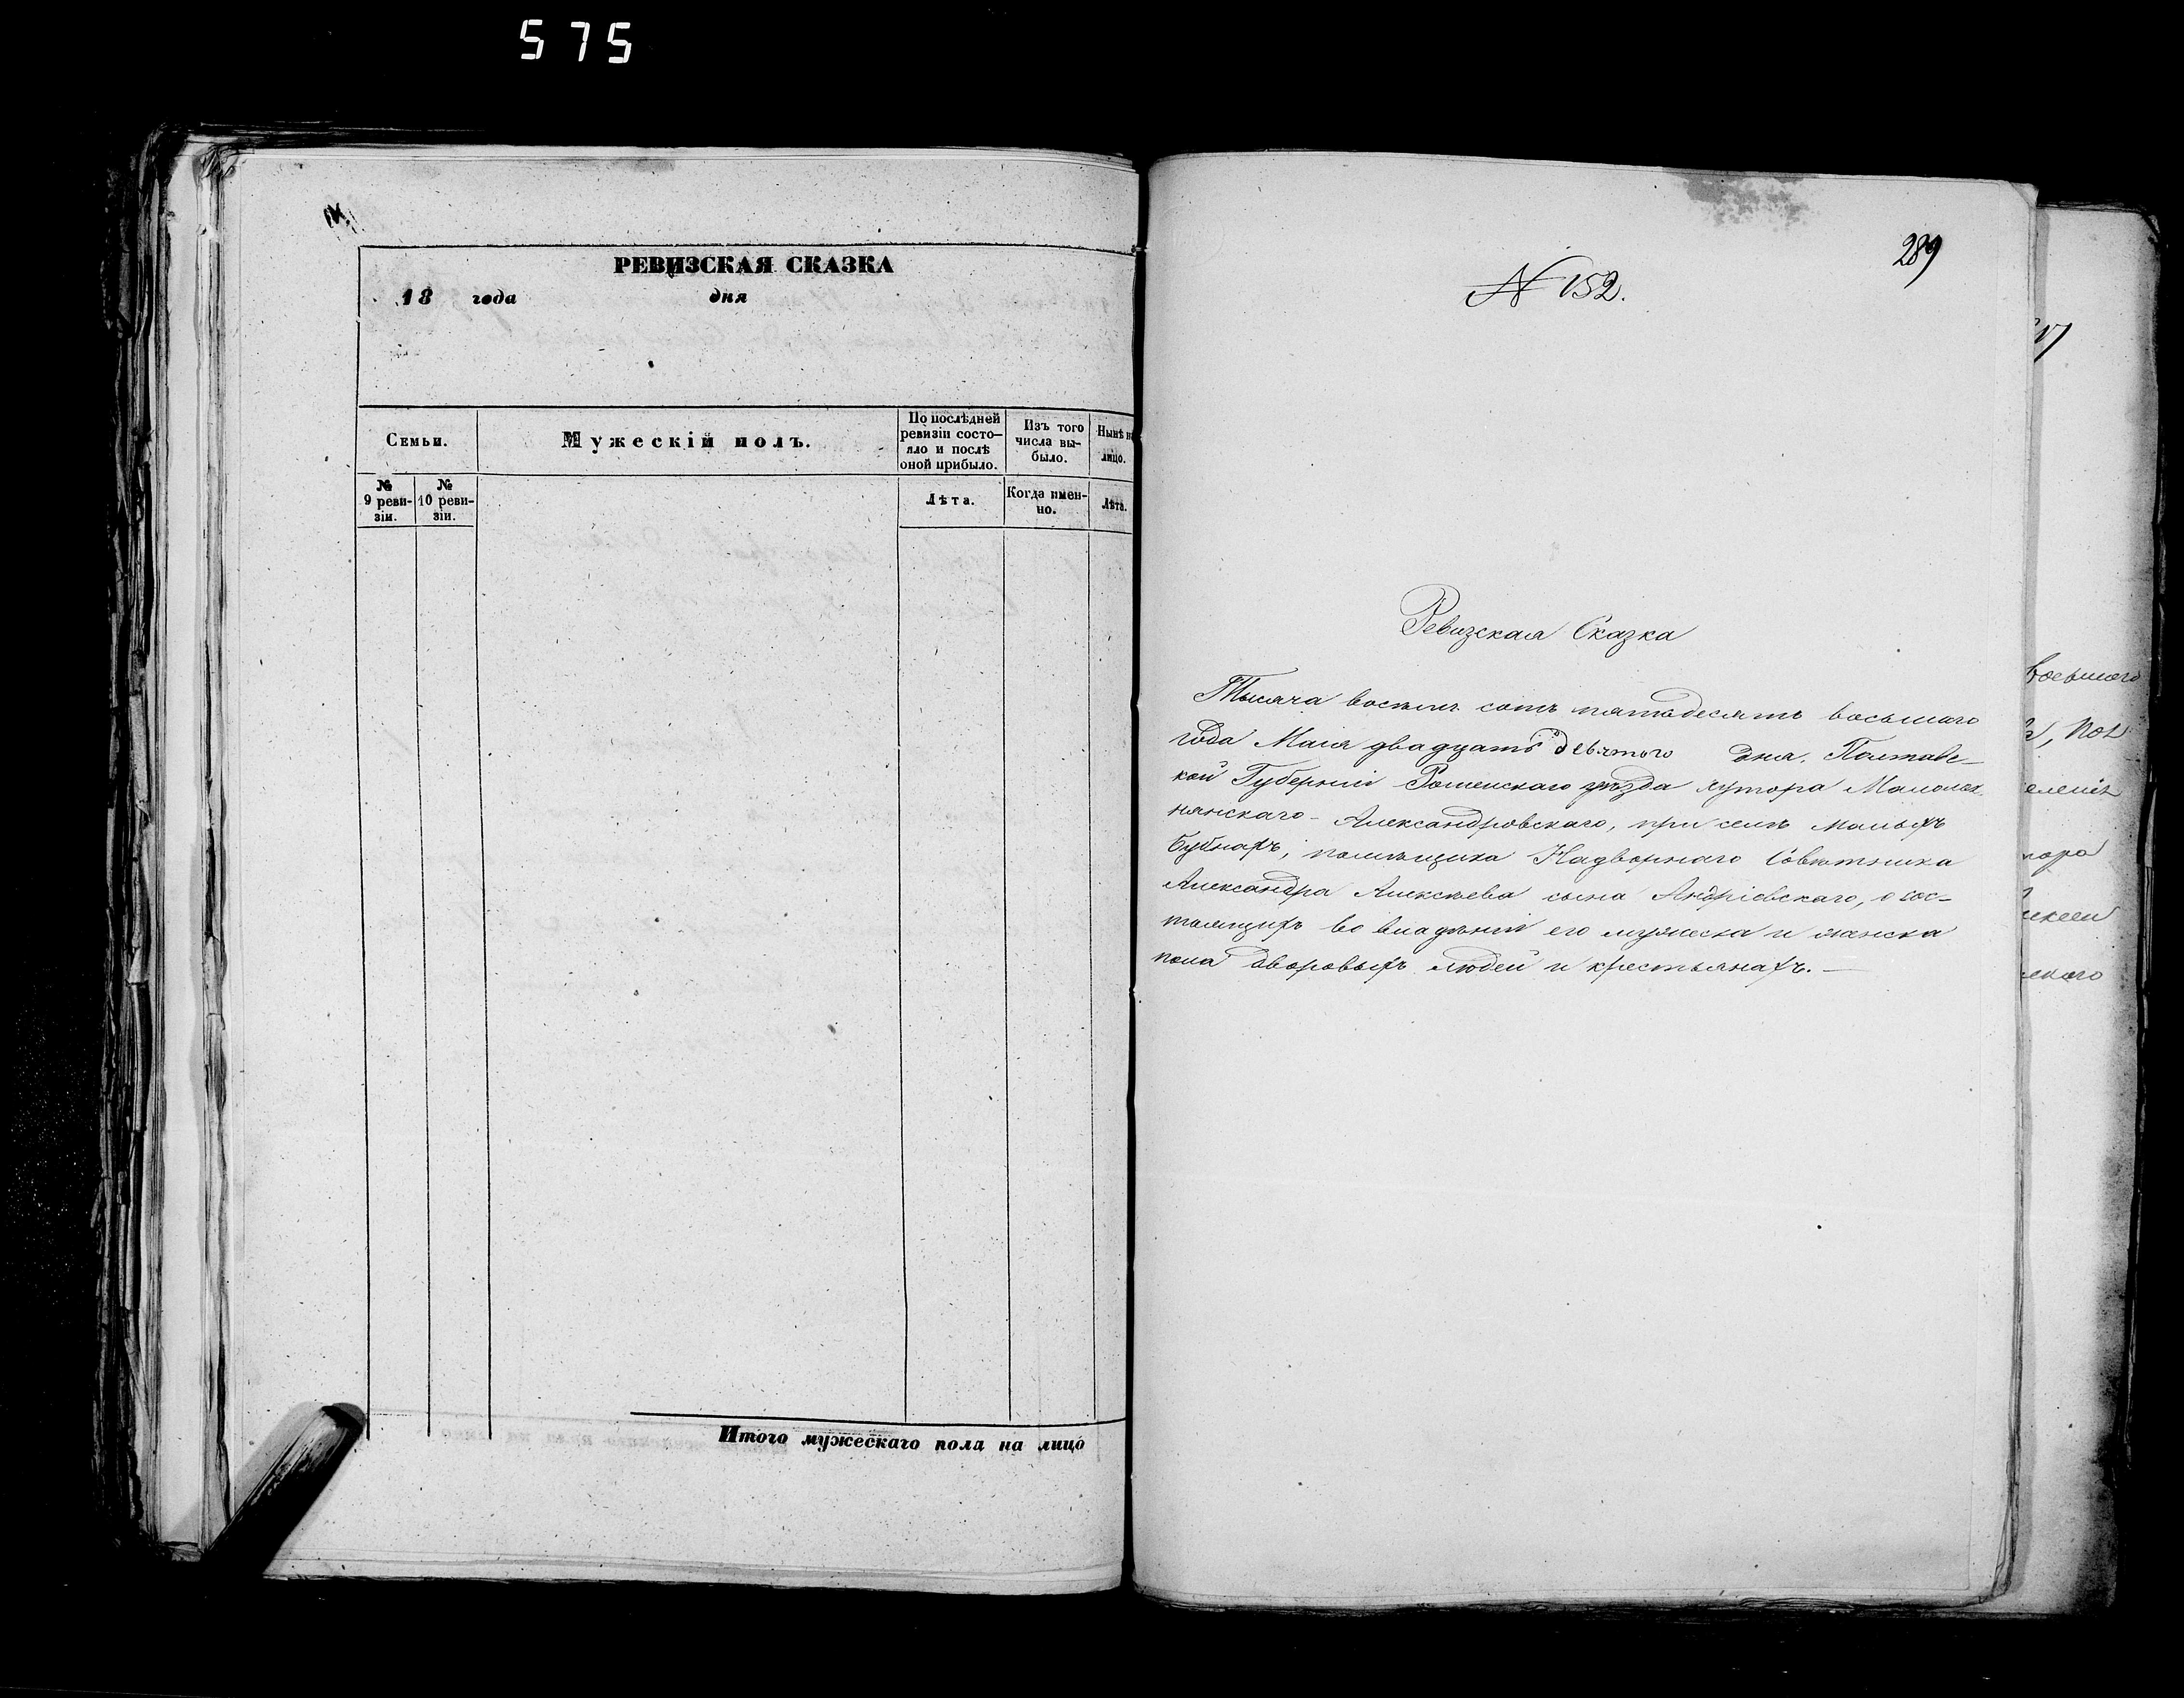 575
РЕВИЗСКАЯ СКАЗКА
18 года дня
Семьи.
Мужескій полъ.
По послѣдней ревизіи состо-
яло и послѣ
оной прибыло.
Изъ того
числа вы-
было.
Нынѣ на
лицо.
№
9 реви-
зіи.
№
10 реви-
зіи.
Лѣта.
Когда имен-
но.
Лѣта.
Итого мужескаго пола на лицо
289
N 152.
Ревизская Сказка
Тысяча восѣмъ сотъ пятьдесятъ восьмаго
года Маія двадцать девятого Дня. Полтавс-
кой Губерніи Роменскаго уѣзда хутора
нянскаго-Александровскаго, при селѣ Малыхъ
Бубнахъ, помѣщика Надворнаго Совѣтника
Александра Алексѣева сына Андріевскаго, о сос-
тоящихъ во владѣніи его мужеска и женска
пола дворовыхъ людей и крестьянахъ.-